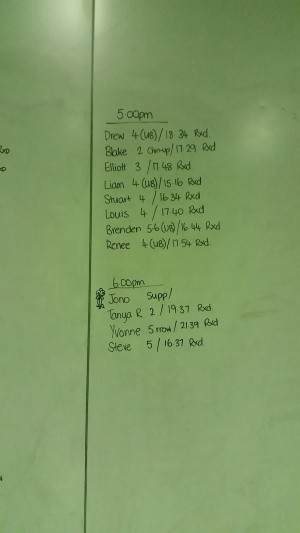 5:00pm
Drew 4 (UB) / 18.34 Rxd.
Blake 2 Chinup / 17.29 Rxd
Elliott 3 / 17.48 Rxd
Liam 4 (UB) / 15.16 Rxd
Stuart 4 / 16.34 Rxd
Louis 4 / 17.40 Rxd
Brenden 5-6 (UB) / 16.44 Rxd
Renee 4 (UB) / 17.54 Rxd.
6:00pm
Jono Supp /
Tanya R 2 / 19.37 Rxd.
Yvonne 5 mow / 21.39 Rxd
Steve 5 / 16.37 Rxd.